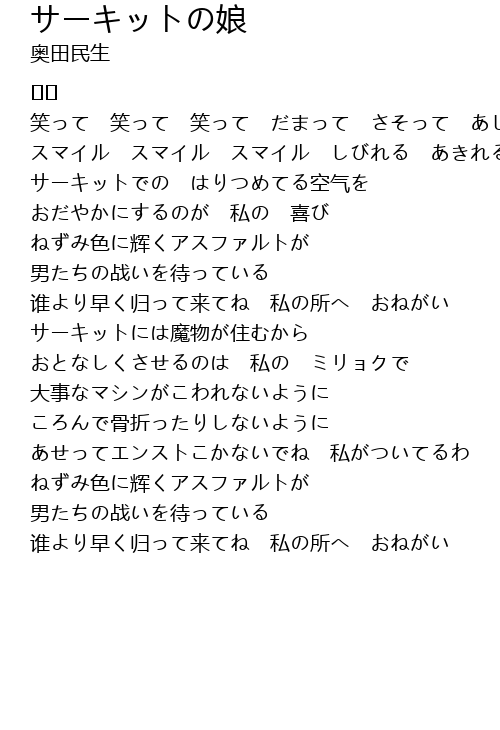 サーキットの娘
奥田民生
笑って　笑って　笑って　だまって　さそって　あし
スマイル　スマイル　スマイル　しびれる　あきれる
サーキットでの　はりつめてる空气を
おだやかにするのが　私の　喜び
ねずみ色に辉くアスファルトが
男たちの战いを待っている
谁より早く归って来てね　私の所へ　おねがい
サーキットには魔物が住むから
おとなしくさせるのは　私の　ミリョクで
大事なマシンがこわれないように
ころんで骨折ったりしないように
あせってエンストこかないでね　私がついてるわ
ねずみ色に辉くアスファルトが
男たちの战いを待っている
谁より早く归って来てね　私の所へ　おねがい